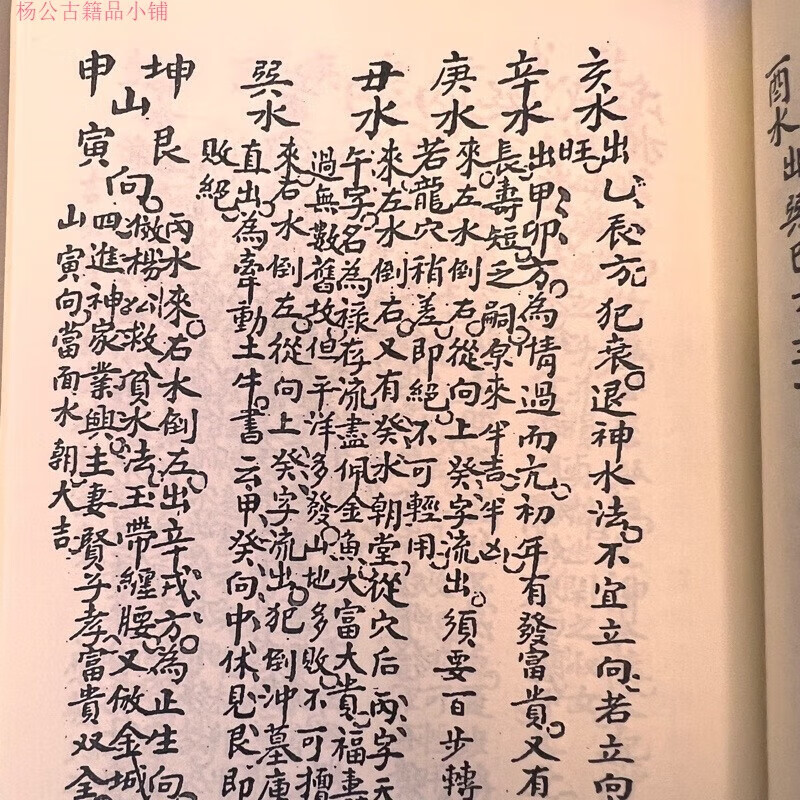 杨公古籍品小铺
酉水出巽巳
亥水
出乙辰方犯衰退神水法不宜立向若立向
旺
辛水
出甲卯方為情過而亢初年有發富貴又有
長壽短乏嗣原來半吉半凶
庚水
來左水倒右從向上癸字流出須要百步轉
若龍穴稍差即絕不可輕用
丑水
淶左水倒右又有癸水朝堂從穴后丙字天
午字名為祿存流盡佩金魚大富大貴福壽
過無數舊故但平洋多發山地多敗不可擅
巽水
來右水倒左從向上癸字流出犯倒沖墓庫
直出為牽動土牛書云甲癸向中休見艮即
敗絕
坤艮
山向
申寅
丙水淶右水倒左出辛戌方為正生向
倣楊公救貧水法玉帶纏腰又倣金城
四進神家業興主妻賢子孝富貴双全
山寅向當面水朝大吉